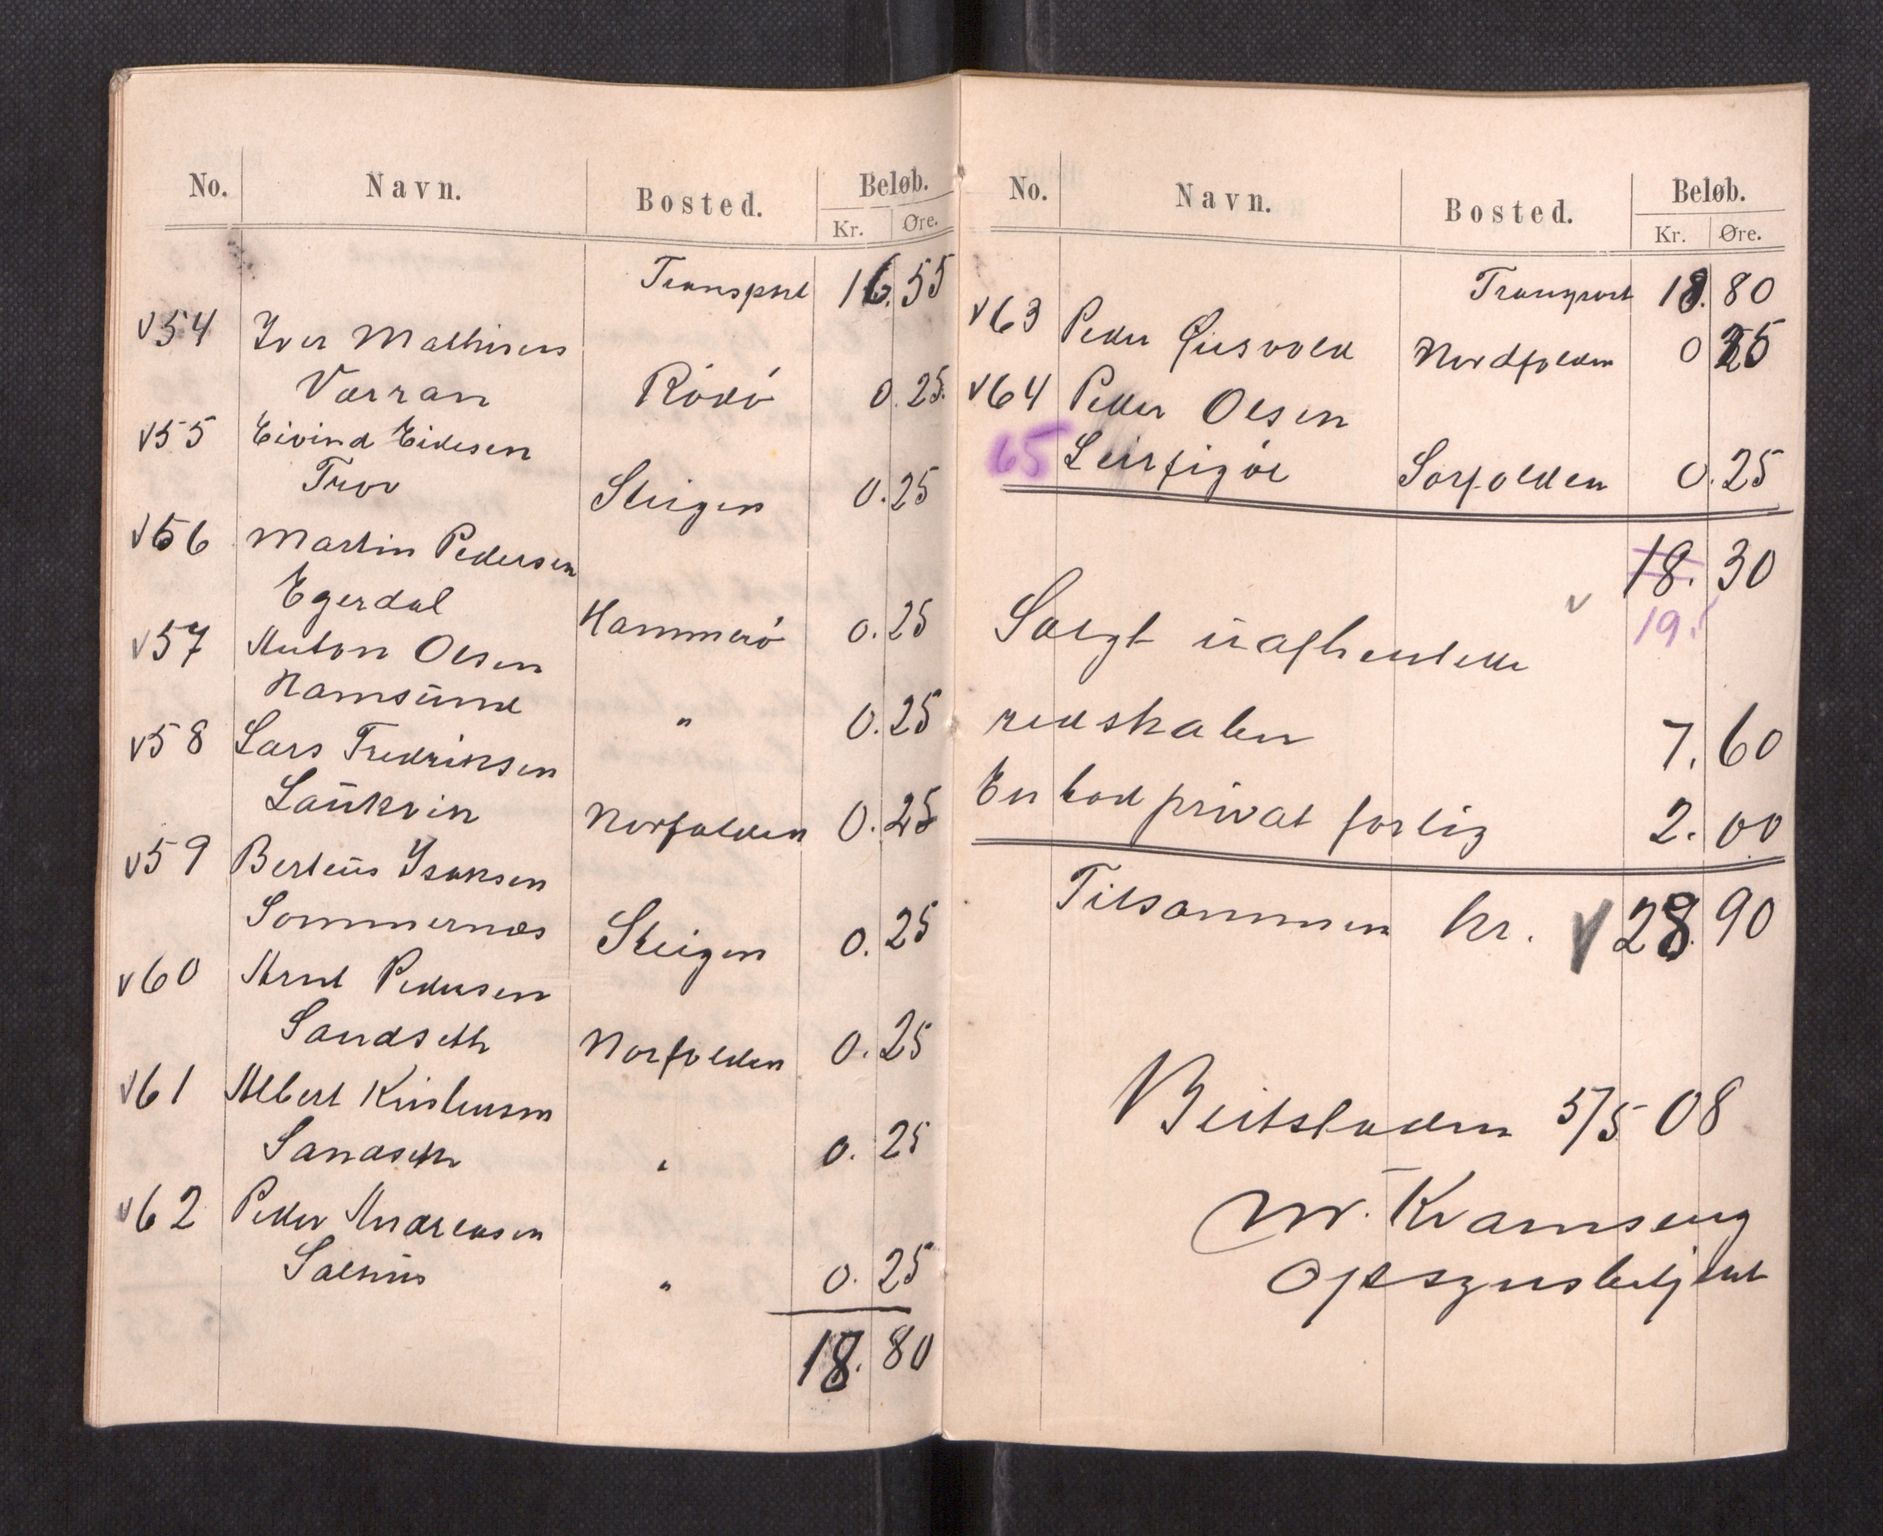 No. Navn. Bosted. Beløb.
Kr. Øre.
Transport 16. 55
v54 Iver Mathisen
Værran Rödö 0. 25.
v55 Eivind Eidesen
Trov Steigen 0. 25
v56 Martin Pedersen
Egerdal Hammerö 0. 25
v57 Anton Olsen
Hamsund " 0. 25
v58 Lars Fredriksen
Laükvin Norfolden 0. 25
v59 Berteüs Isaksen
Sommernæs Steigen 0. 25
v60 Arnt Pedersen
Sandseth Norfolden 0. 25
v61 Albert Kristensen
Sandseth " 0. 25
v62 Peder Andreasen
" 0. 25
18. 80
No. Navn. Bosted. Beløb.
Kr. Øre.
Transport 18. 80
v63 Peder Nordfolden 0 25
v64 Peder Olsen
65 Sørfolden 0. 25
18. 30
v 19.
Solgt üafhentede
redskaber 7. 60
En bod privat forlig 2. 00
Tilsammen kr. v 28. 90
Beitstaden 5/5 08
M. Kramseng
Opsynsbetjent